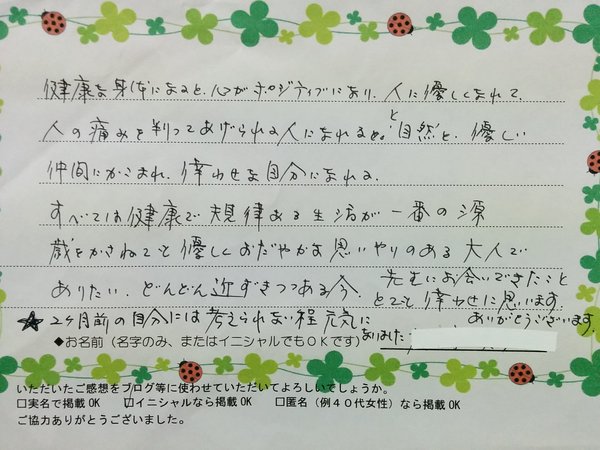 健康な身体になると、心がポジティブになり、人に優しくなれて、
人の痛みを判ってあげられる人になれると。と自然と、優しい
仲間にかこまれ、倖わせな自分になれる。
すべては健康で規律ある生活が一番の源
歳をかさねてても優しくおだやかな思いやりのある大人で
ありたい。どんどん近ずきつつある今、先生にお会いできたこと
とても倖わせに思います。
ありがとうございます。
★2ヶ月前の自分には考えられない程元気に
なりました
◆お名前（名字のみ、またはイニシャルでもＯＫです）
いただいたご感想をブログ等に使わせていただいてよろしいでしょうか。
□実名で掲載 OK ☑イニシャルなら掲載 OK □匿名（例４０代女性）なら掲載 OK
ご協力ありがとうございました。